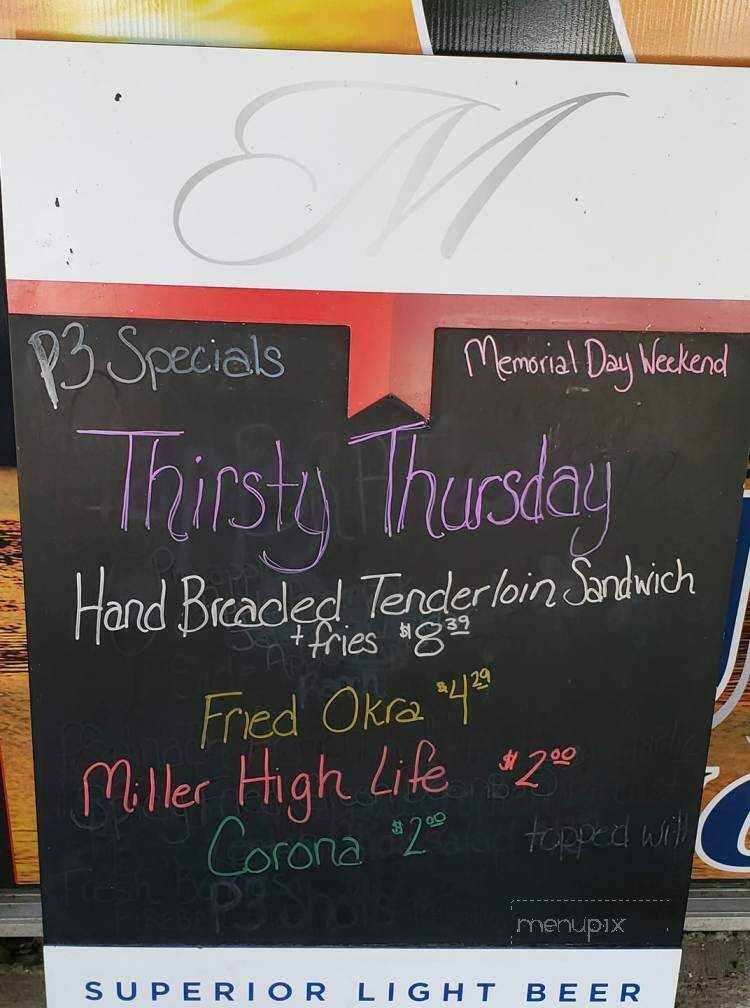 M
P3 Specials
Memorial Day Weekend
Thirsty Thursday
Hand Breaded Tenderloin Sandwich
+ fries $8.39
Fried Okra $4.29
Miller High Life $2.00
Corona $2.00
topped with
P3 Shots
menupix
SUPERIOR LIGHT BEER